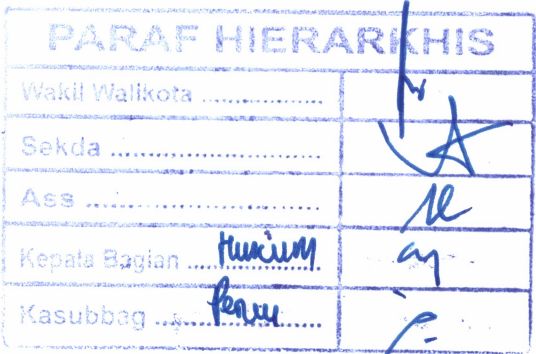 PARAF HIERARKHIS
Wakil Walikota ....................
Sekda ....................
Ass ....................
Kepala Bagian Hukum
Kasubbag